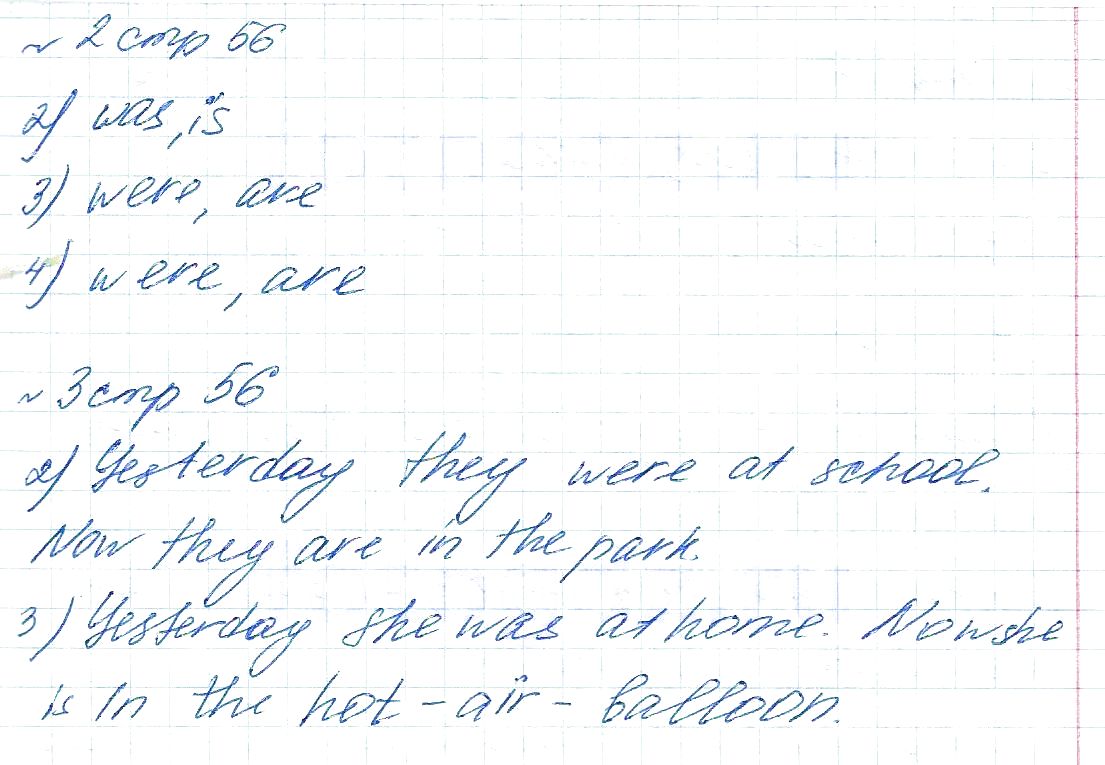 ~ 2 стр 56
2) was, is
3) were, are
4) were, are
~ 3 стр 56
2) Yesterday they were at school.
Now they are in the park.
3) Yesterday she was at home. Now she
is in the hot-air-balloon.